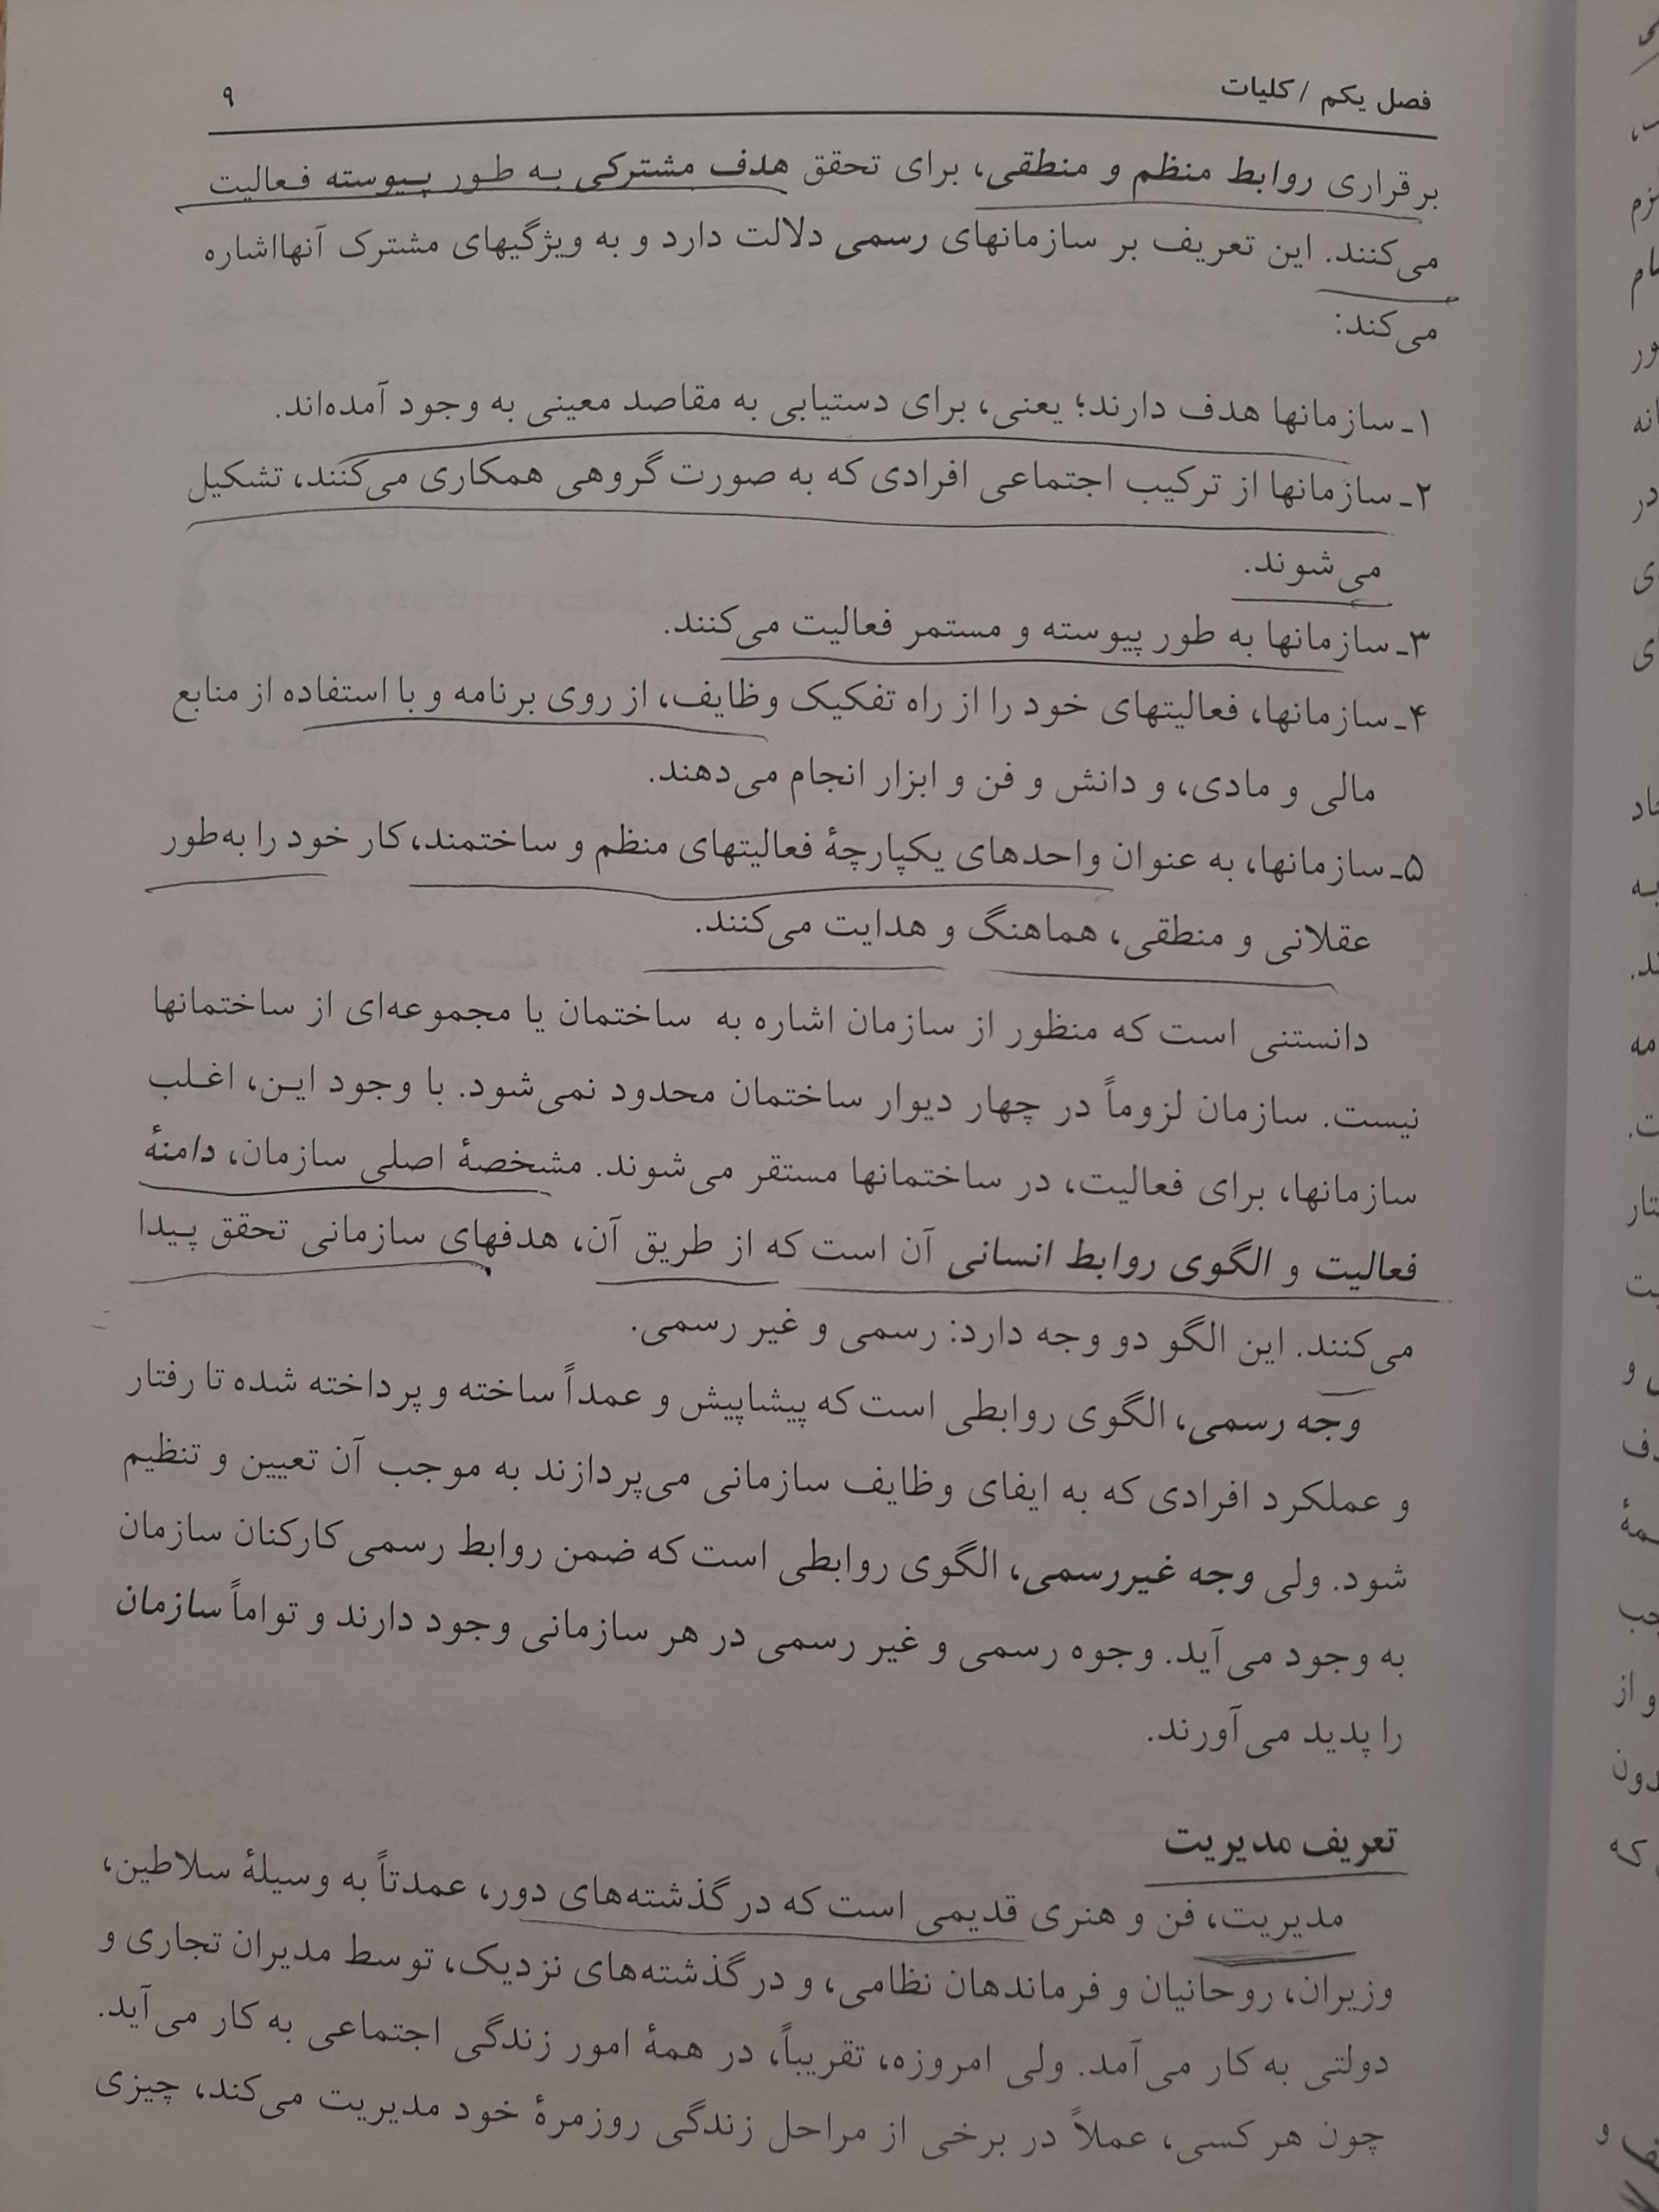 فصل یکم / کلیات ۹
برقراری روابط منظم و منطقی، برای تحقق هدف مشترکی به طور پیوسته فعالیت
می‌کنند. این تعریف بر سازمانهای رسمی دلالت دارد و به ویژگیهای مشترک آنهااشاره
می‌کند:
۱ـ سازمانها هدف دارند؛ یعنی، برای دستیابی به مقاصد معینی به وجود آمده‌اند.
۲ـ سازمانها از ترکیب اجتماعی افرادی که به صورت گروهی همکاری می‌کنند، تشکیل
می‌شوند.
۳ـ سازمانها به طور پیوسته و مستمر فعالیت می‌کنند.
۴ـ سازمانها، فعالیتهای خود را از راه تفکیک وظایف، از روی برنامه و با استفاده از منابع
مالی و مادی، و دانش و فن و ابزار انجام می‌دهند.
۵ـ سازمانها، به عنوان واحدهای یکپارچهٔ فعالیتهای منظم و ساختمند، کار خود را به‌طور
عقلانی و منطقی، هماهنگ و هدایت می‌کنند.
دانستنی است که منظور از سازمان اشاره به ساختمان یا مجموعه‌ای از ساختمانها
نیست. سازمان لزوماً در چهار دیوار ساختمان محدود نمی‌شود. با وجود این، اغلب
سازمانها، برای فعالیت، در ساختمانها مستقر می‌شوند. مشخصهٔ اصلی سازمان، دامنهٔ
فعالیت و الگوی روابط انسانی آن است که از طریق آن، هدفهای سازمانی تحقق پیدا
می‌کنند. این الگو دو وجه دارد: رسمی و غیر رسمی.
وجه رسمی، الگوی روابطی است که پیشاپیش و عمداً ساخته و پرداخته شده تا رفتار
و عملکرد افرادی که به ایفای وظایف سازمانی می‌پردازند به موجب آن تعیین و تنظیم
شود. ولی وجه غیررسمی، الگوی روابطی است که ضمن روابط رسمی کارکنان سازمان
به وجود می‌آید. وجوه رسمی و غیر رسمی در هر سازمانی وجود دارند و تواماً سازمان
را پدید می‌آورند.
تعریف مدیریت
مدیریت، فن و هنری قدیمی است که در گذشته‌های دور، عمدتاً به وسیلهٔ سلاطین،
وزیران، روحانیان و فرماندهان نظامی، و در گذشته‌های نزدیک، توسط مدیران تجاری و
دولتی به کار می‌آمد. ولی امروزه، تقریباً، در همهٔ امور زندگی اجتماعی به کار می‌آید.
چون هر کسی، عملاً در برخی از مراحل زندگی روزمرهٔ خود مدیریت می‌کند، چیزی